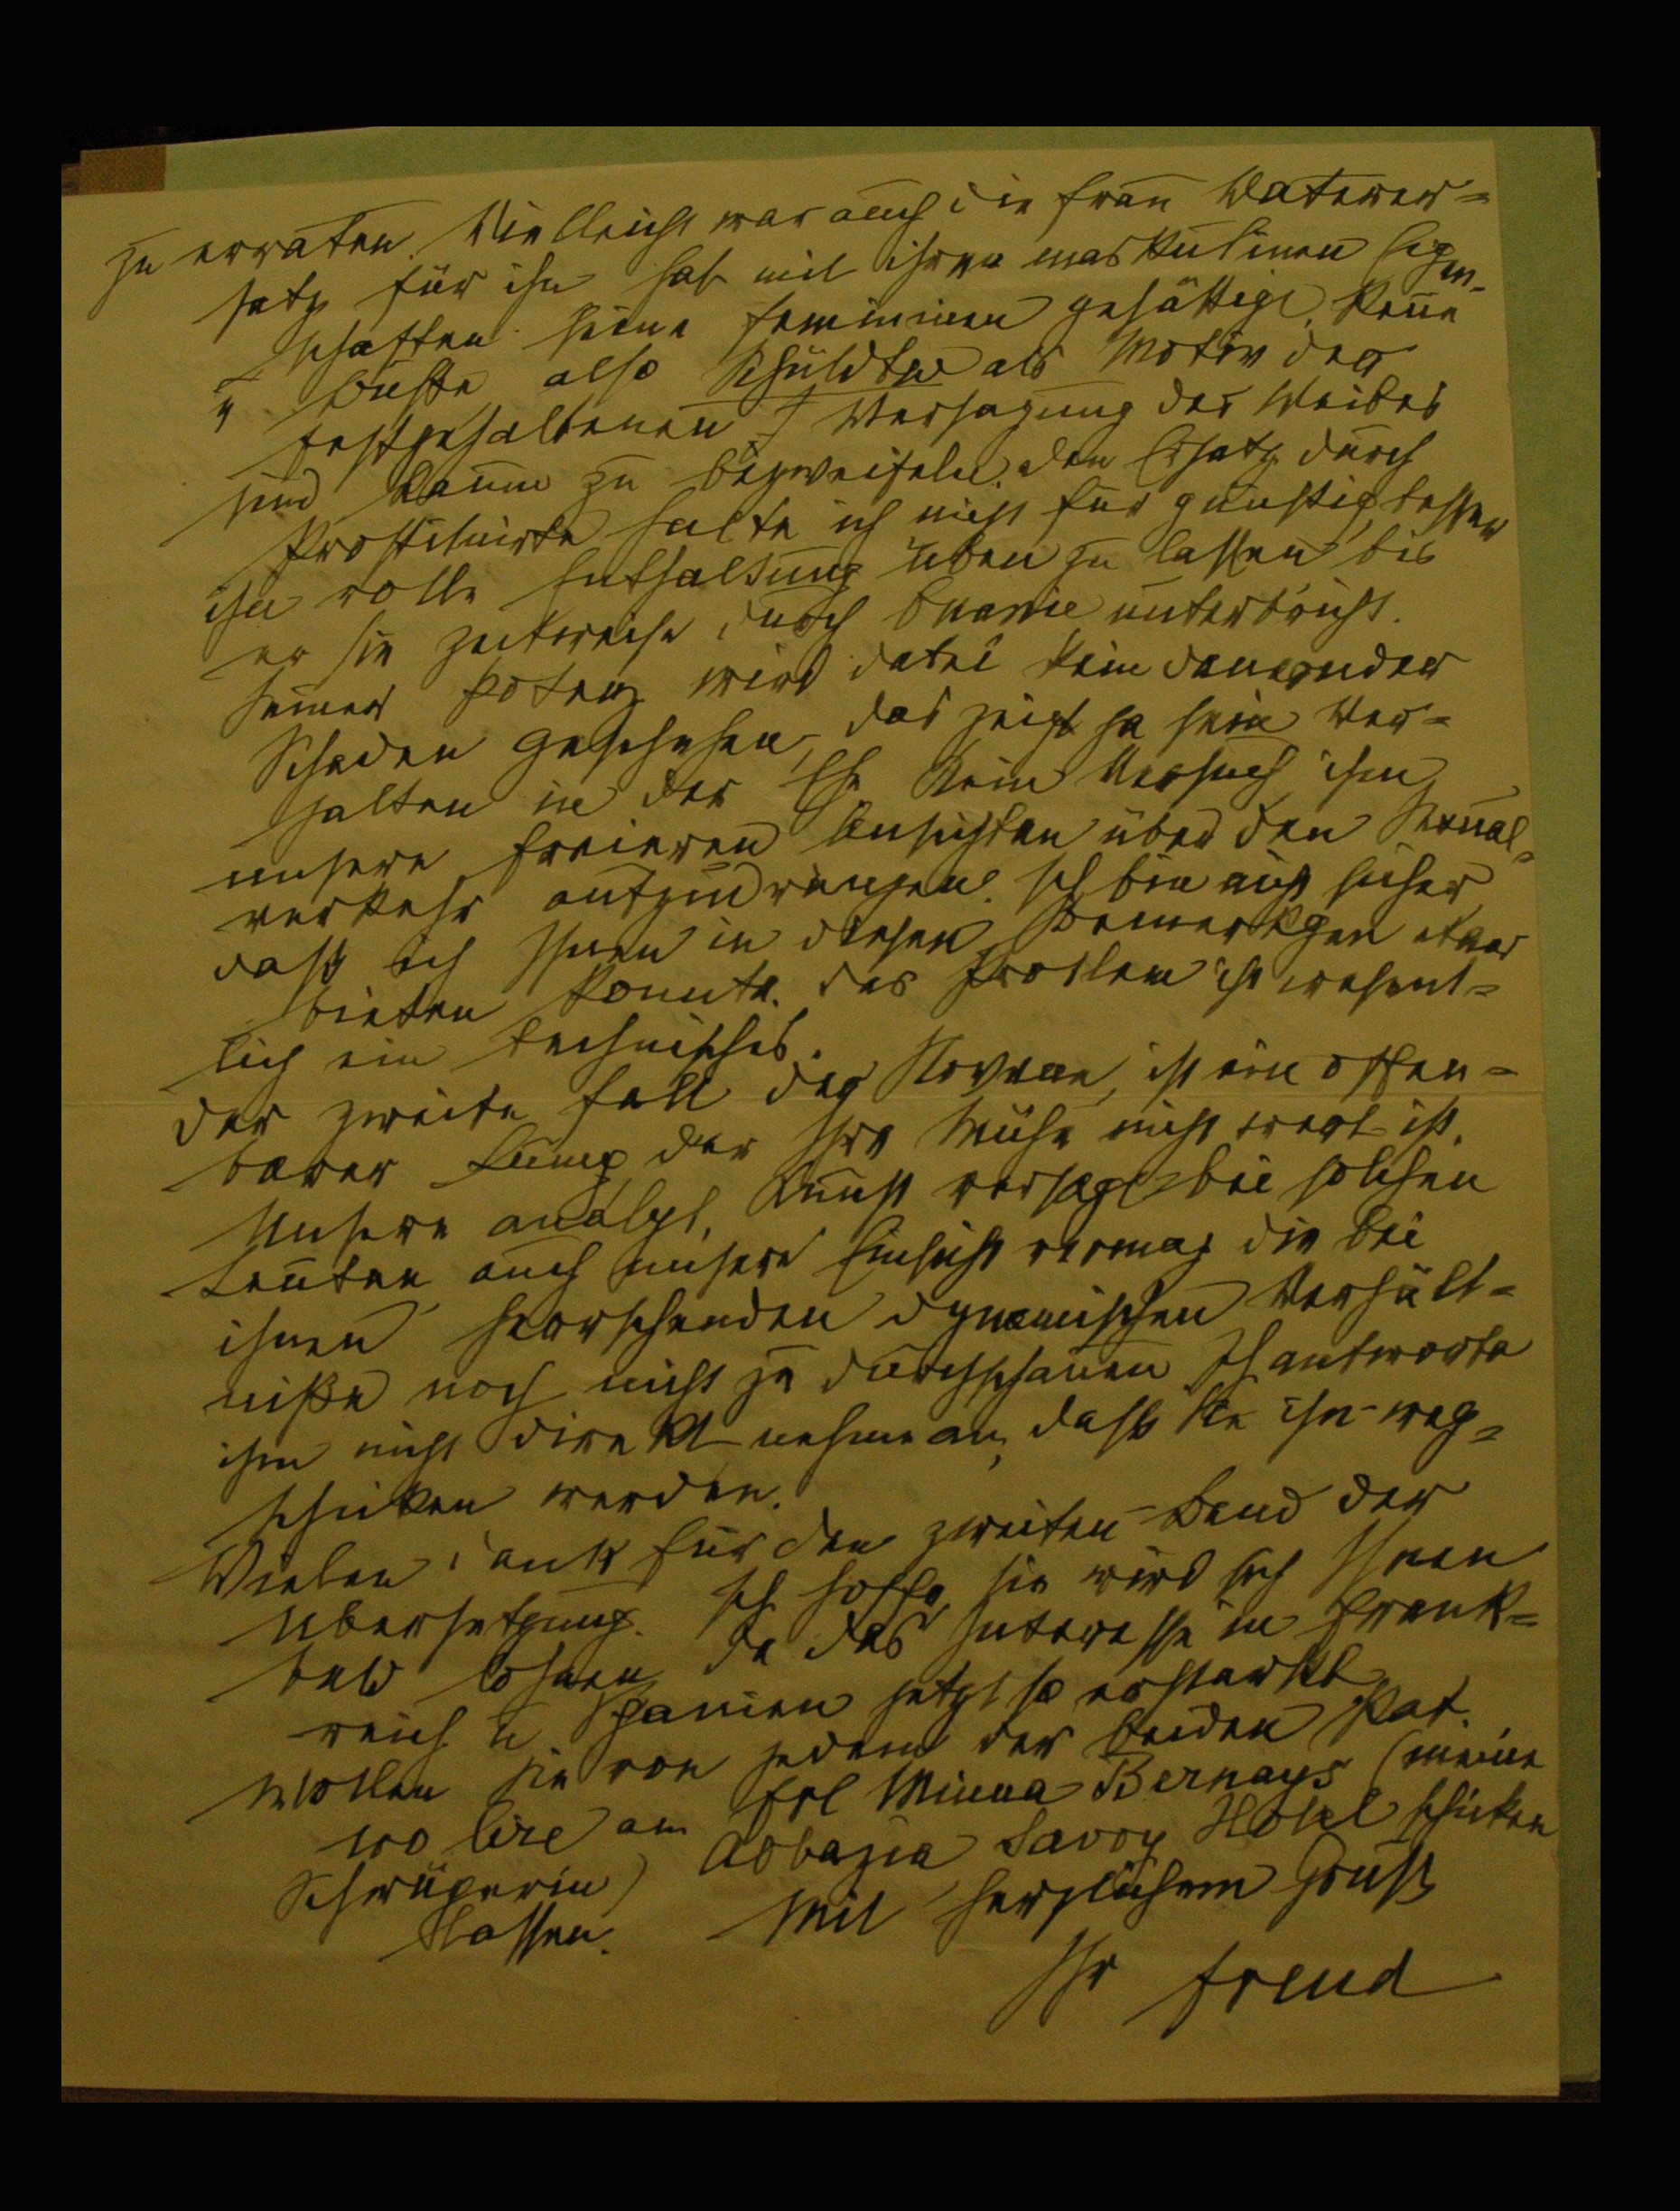 zu erraten. Vielleicht war auch die Frau Vaterer-
satz für ihn hat mit ihren maskulinen Eigen-
schaften seine femininen gesättigt. Reue
u Busse also Schuldbew als Motiv der
festgehaltenen Versagung des Weibes
sind kaum zu bezweifeln. Den Ersatz durch
Prostituirte halte ich nicht für günstig, besser
ihn volle Enthaltung üben zu lassen bis
er sie zeitweise durch Onanie unterbricht.
Seiner Potenz wird dabei kein dauernder
Schaden geschehen, das zeigt ja sein Ver-
halten in der Ehe. Kein Versuch ihm
unsere freieren Ansichten über den Sexual-
verkehr aufzudrängen. Ich bin nicht sicher
dass ich Ihnen in diesen Bemerkgen etwas
bieten konnte. Das Problem ist wesent-
lich ein technisches.
Der zweite Fall, ist ein offen-
barer Lump der Ihre Mühe nicht wert ist.
Unsere analyt. Kunst versagt bei solchen
Leuten auch unsere Einsicht vermag die bei
ihnen herrschenden dynamischen Verhält-
nisse noch nicht zu durchschauen Ich antworte
ihm nicht direkt nehme an, dass Sie ihn weg-
schicken werden.
Vielen Dank für den zweiten Band der
Übersetzung. Ich hoffe, sie wird sich Ihnen
bald lohnen da das Interesse in Frank-
reich u Spanien jetzt so erstarkt.
Wollen Sie von jedem der beiden Pat.
100 lire an Frl Minna Bernays (meine
Schwägerin) Abbazia Savoy Hotel schicken
lassen. Mit herzlichem Gruß
Ihr Freud